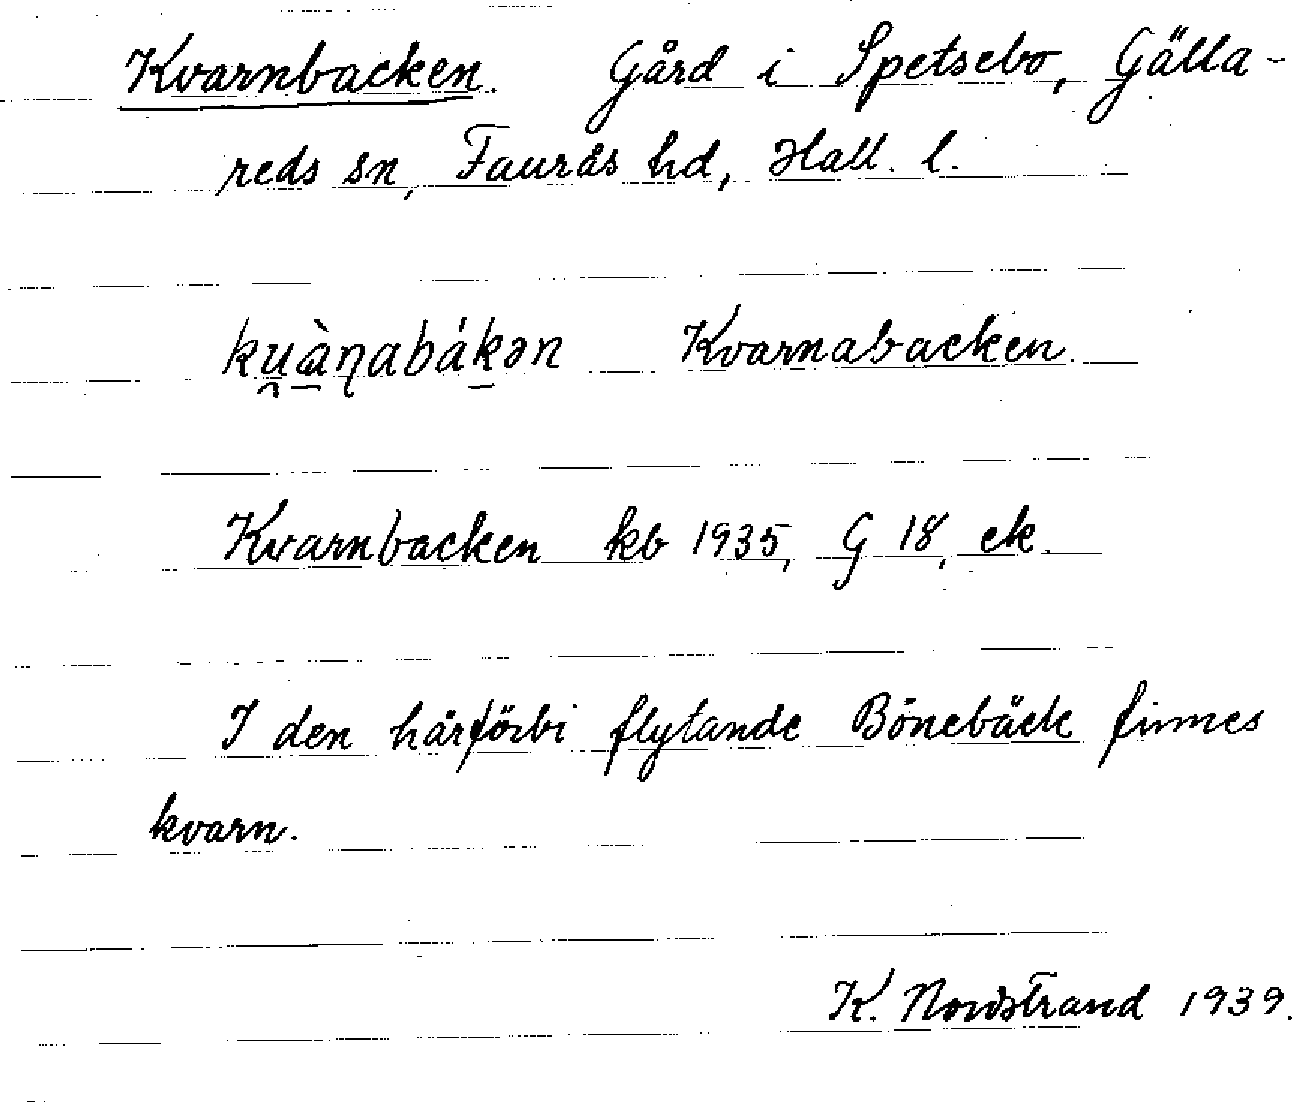 Kvarnbacken. Gård i Spetsebo, Gälla-
reds sn, Faurås hd, Hall. l.
ku̯àɳabákən Kvarnabacken.
Kvarnbacken kb 1935, G 18, ek.
I den härförbi flytande Bönebäck finnes
kvarn.
K. Nordstrand 1939.